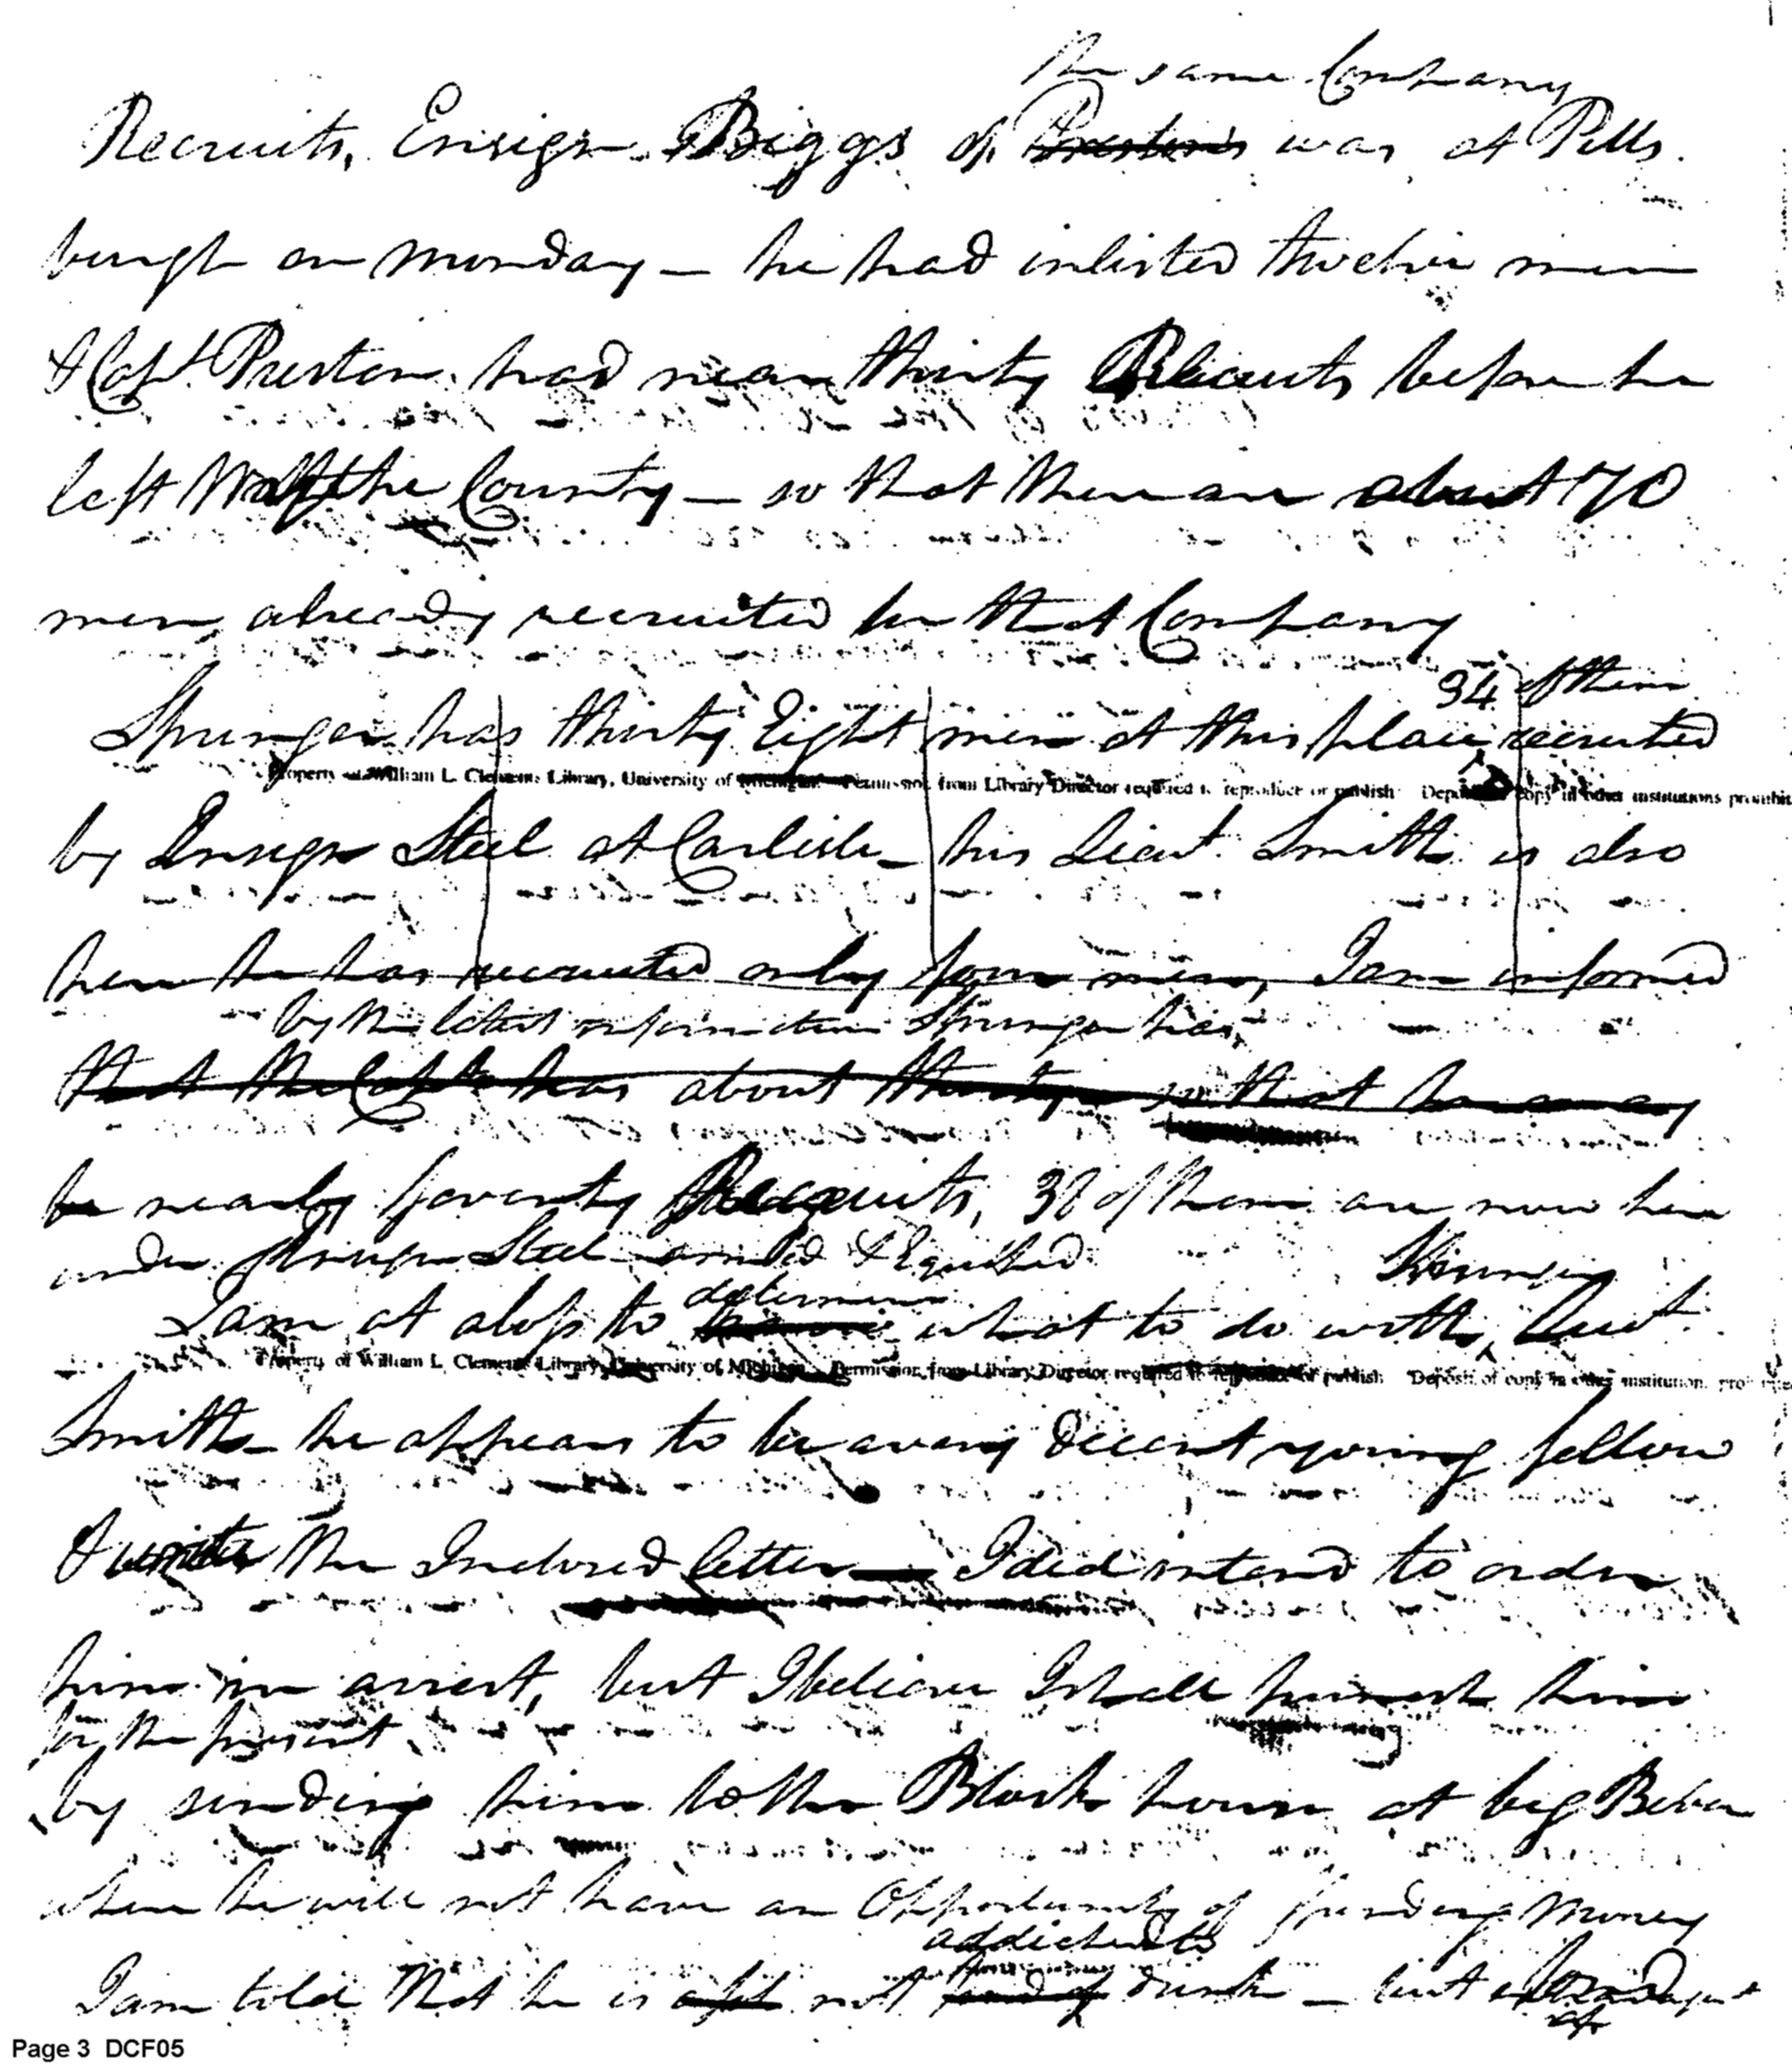 the same Company
Recruits, Ensign Biggs of Preston's was at Pitts
burgh on Monday – he had inlisted twelve men
& Capt. Preston had near thirty Recruits before he
left the County – so that there are about 70
men already recruited for that Company
34 of them
Springer has thirty Eight men at this place, recruited
Property of William L. Clements Library, University of Michigan Permission from Library Director required to reproduce or publish Deposit of copy in other institutions prohibit
by Ensign Steel at Carlisle – his Lieut. Smith is also
here he has recruited only four men, I am informed
by the latest information Springer has
that the Capt. has about thirty so that he may
be nearly seventy Recruits, 38 of them are now here
under Ensign Steel armed & Equiped
determine
I am at a loss to what to do with, Lieut.
Property of William L. Clements Library, University of Michigan Permission from Library Director required to reproduce or publish Deposit of copy in other institution
Smith – he appears to be a very decent young fellow
& the Inclosed letter – I did intend to order
him in arrest, but I believe I shall punish him
for the present
by sending him to the Block house at big Beaver
where he will not have an Opportunity of spending Money
addicted to
I am told that he is not fond of drink – but
of
Page 3 DCF05